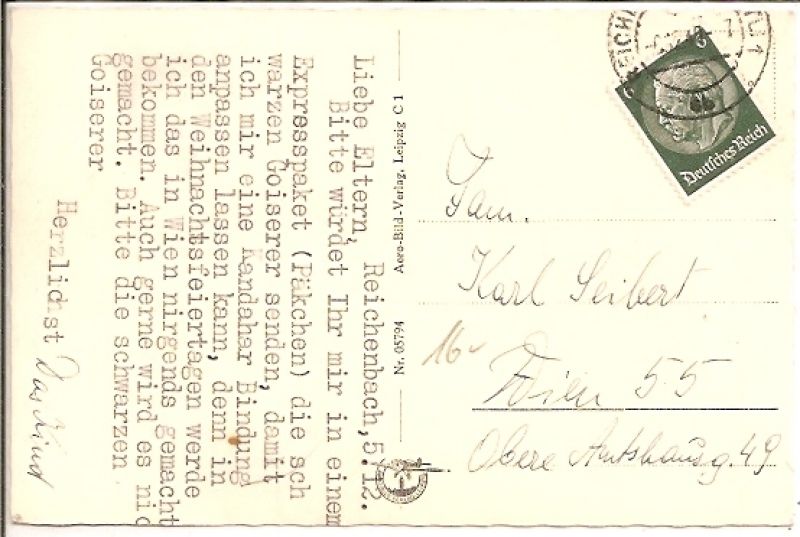 Reichenbach, 5.12.
Liebe Eltern,
Bitte würdet Ihr mir in einem
Expresspaket (Päkchen) die sch
warzen Goiserer senden, damit
ich mir eine Kandahar Bindung
anpassen lassen kann, denn in
den Weihnachtsfeiertagen werde
ich das in Wien nirgends gemacht
bekommen. Auch gerne wird es nic
gemacht. Bitte die schwarzen
Goiserer
Herzlichst
Das Kind
Nr. 05794 Aero-Bild-Verlag, Leipzig C 1
Deutsches Reich
6
Fam.
Karl Seibert
16
Wien 55
Obere Amtshausg. 49